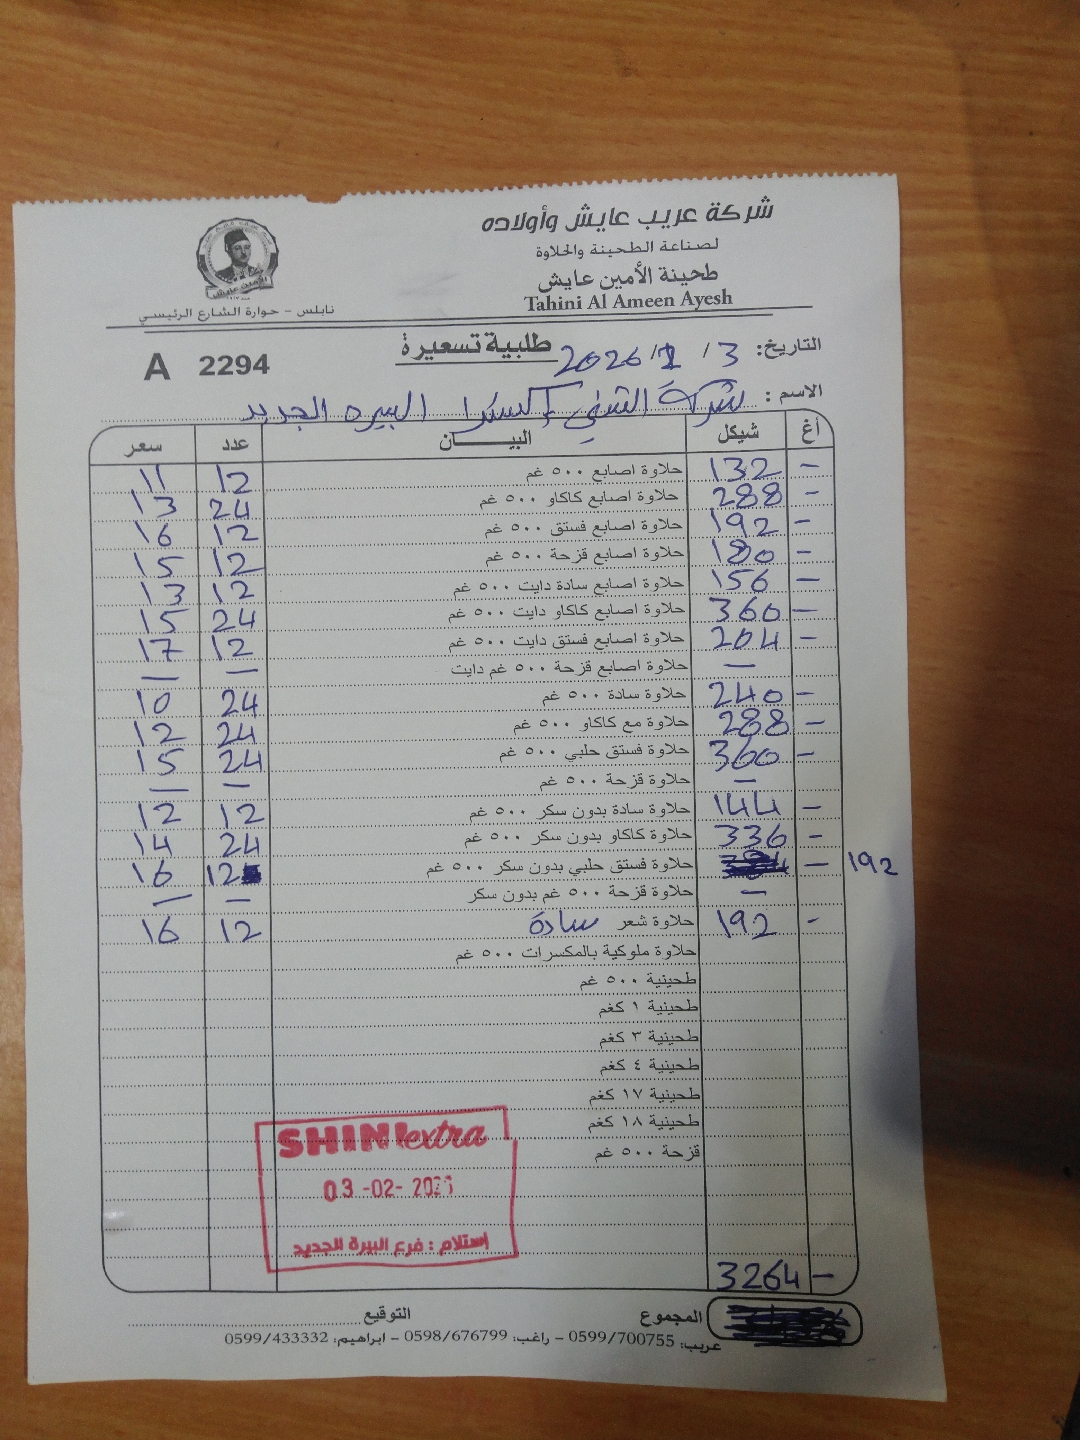 شركة عريب عايش وأولاده
لصناعة الطحينة والحلاوة
طحينة الأمين عايش
Tahini Al Ameen Ayesh
نابلس - حوارة الشارع الرئيسي
طلبية تسعيرة
A 2294
التاريخ: 3 / 2 / 2026
الاسم : شركة الشني إكسترا البيره الجديد
أغ شيكل البيـــــان عدد سعر
- 132 حلاوة اصابع ٥٠٠ غم 12 11
- 288 حلاوة اصابع كاكاو ٥٠٠ غم 24 13
- 192 حلاوة اصابع فستق ٥٠٠ غم 12 16
- 180 حلاوة اصابع قزحة ٥٠٠ غم 12 15
- 156 حلاوة اصابع سادة دايت ٥٠٠ غم 12 13
- 360 حلاوة اصابع كاكاو دايت ٥٠٠ غم 24 15
- 204 حلاوة اصابع فستق دايت ٥٠٠ غم 12 17
— حلاوة اصابع قزحة ٥٠٠ غم دايت — —
- 240 حلاوة سادة ٥٠٠ غم 24 10
- 288 حلاوة مع كاكاو ٥٠٠ غم 24 12
- 360 حلاوة فستق حلبي ٥٠٠ غم 24 15
— حلاوة قزحة ٥٠٠ غم — —
- 144 حلاوة سادة بدون سكر ٥٠٠ غم 12 12
- 336 حلاوة كاكاو بدون سكر ٥٠٠ غم 24 14
192 - حلاوة فستق حلبي بدون سكر ٥٠٠ غم 12 16
— حلاوة قزحة ٥٠٠ غم بدون سكر — —
- 192 حلاوة شعر سادة 12 16
حلاوة ملوكية بالمكسرات ٥٠٠ غم
طحينية ٥٠٠ غم
طحينية ١ كغم
طحينية ٣ كغم
طحينية ٤ كغم
طحينية ١٧ كغم
طحينية ١٨ كغم
قزحة ٥٠٠ غم
SHINI extra
03-02-2026
إستلام : فرع البيرة الجديد
3264 -
المجموع
التوقيع
عريب: 0599/700755 - راغب: 0598/676799 - ابراهيم: 0599/433332